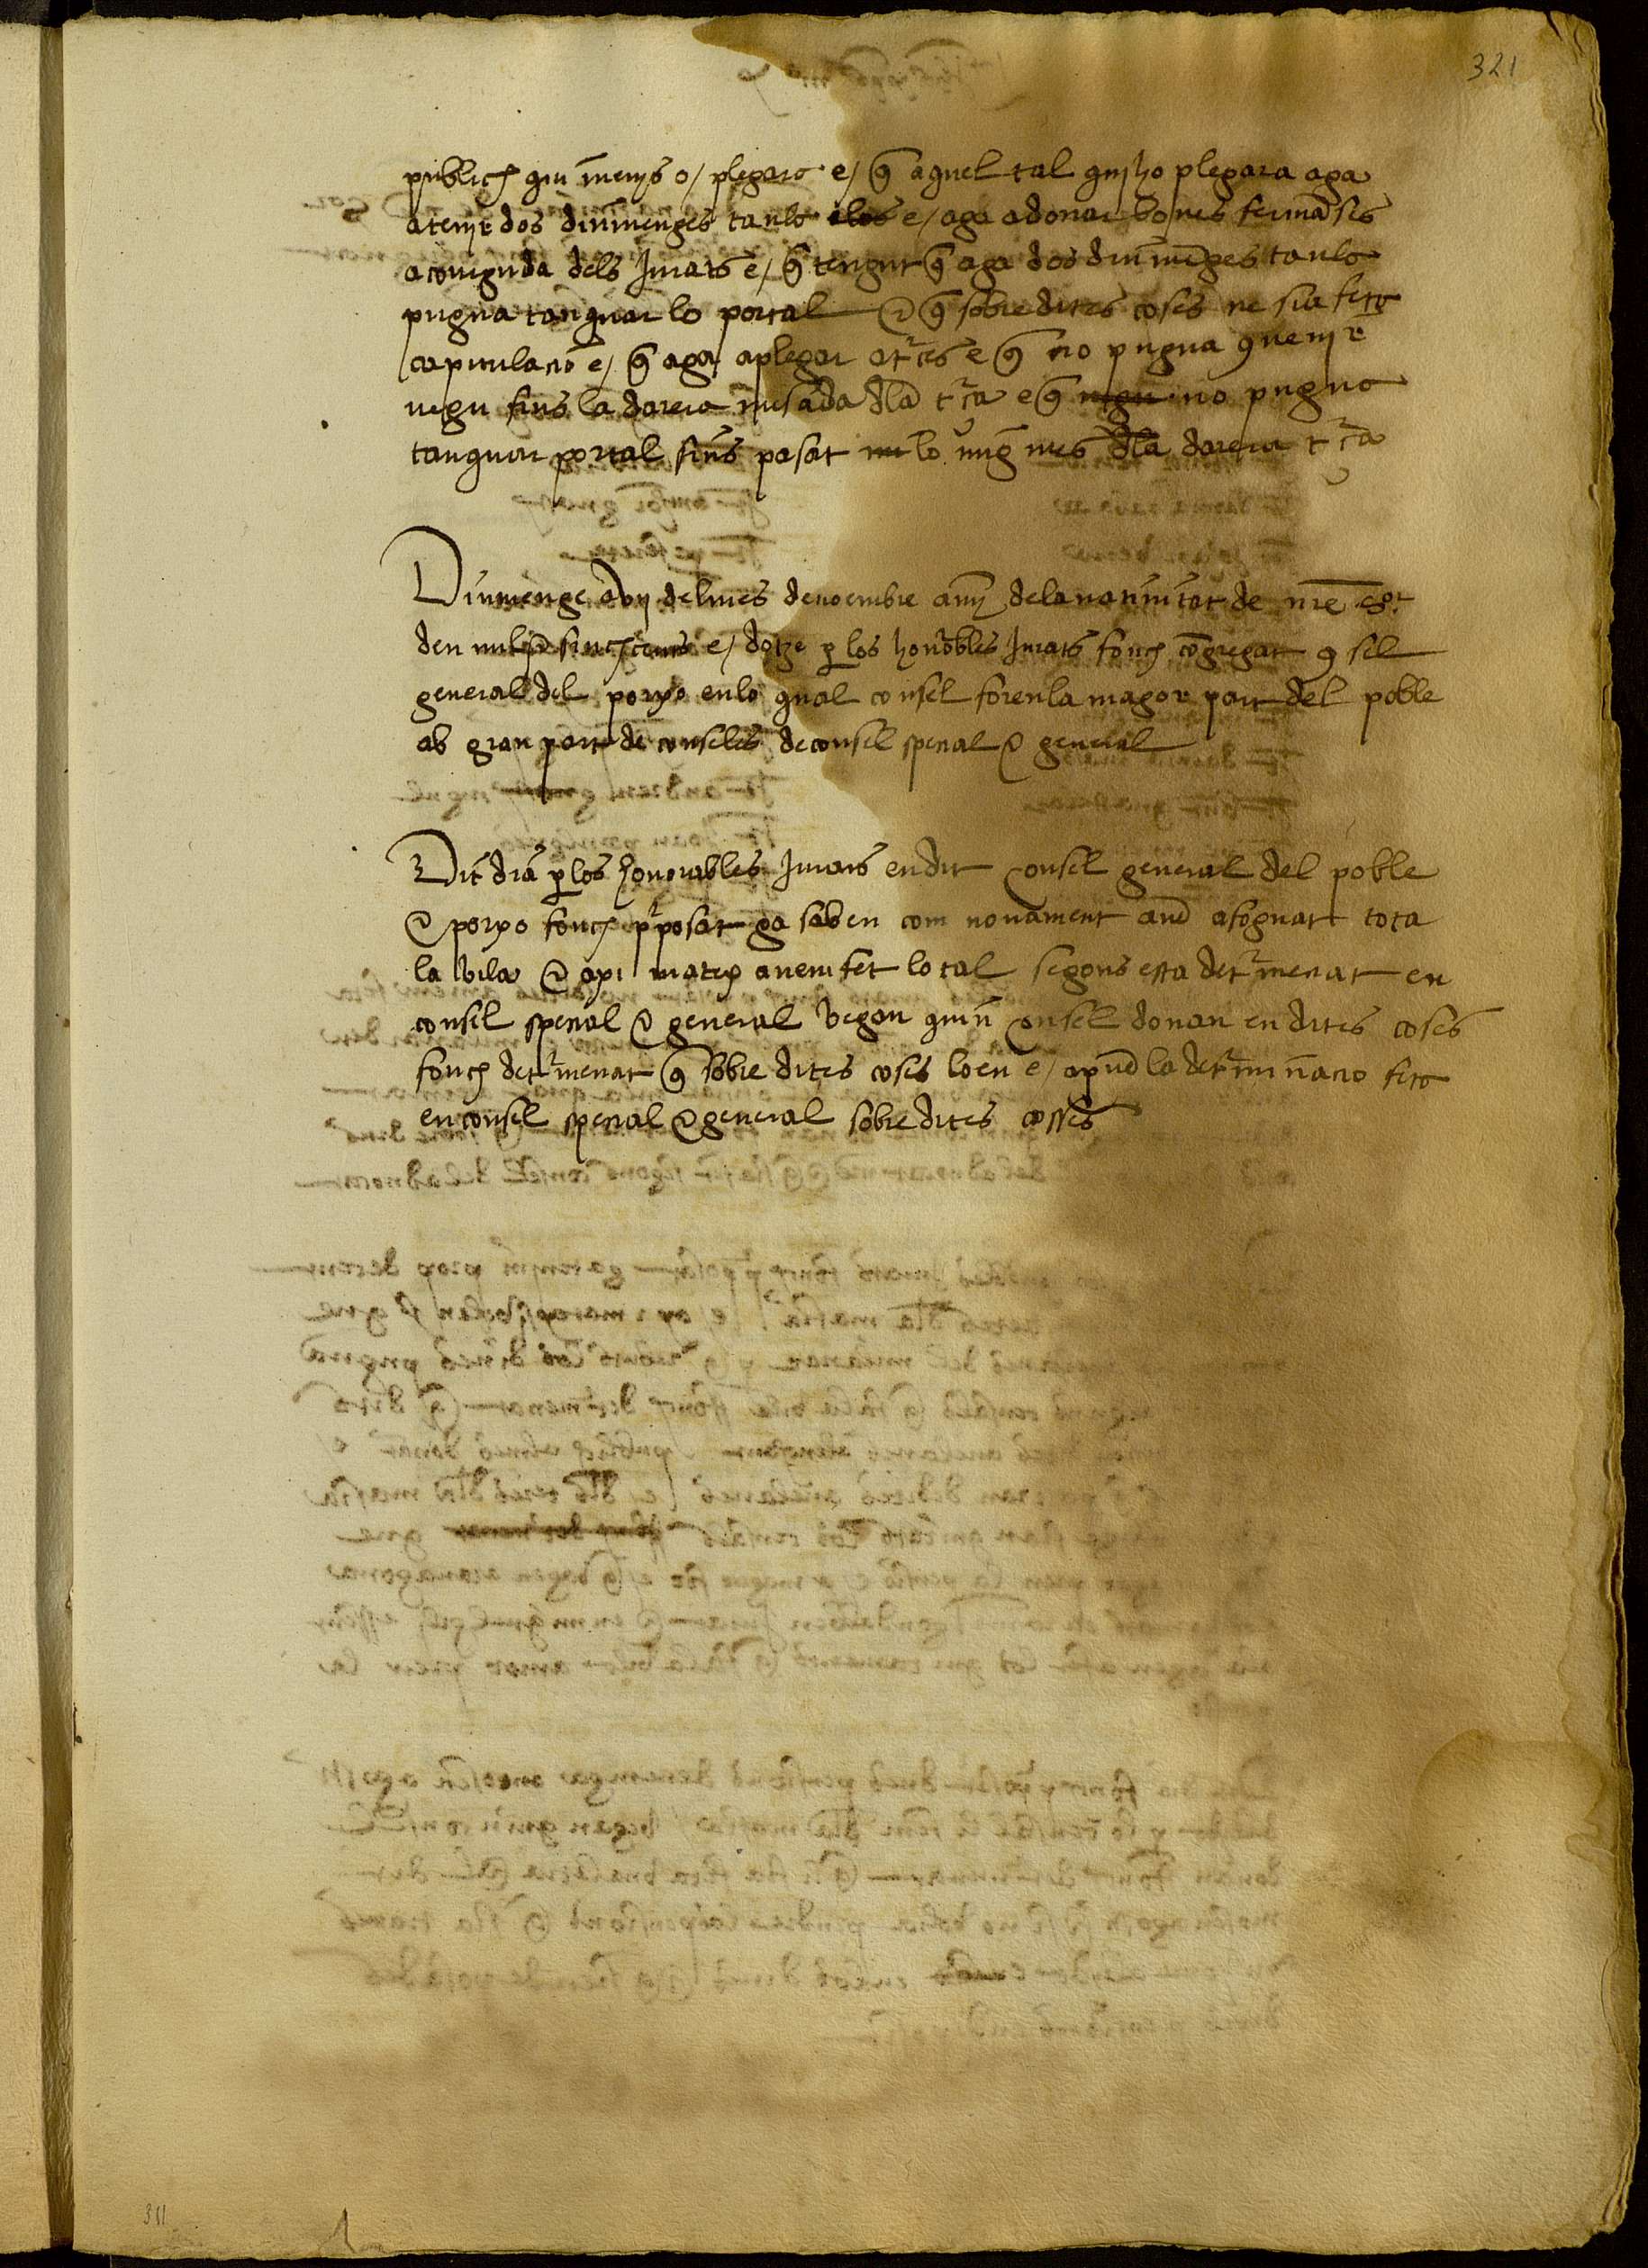 321
publich qui menys o / plegara e / q̃ aquel tal qui ho plegara aga
a tenir dos diumenges taula e / aga a donar bones fermãses
a coneguda dels Jurats e / q̃ tengut q̃ aga dos diumẽges taula
pugua tanquar lo portal & q̃ sobre dites coses ne sia feta
capitulacio e / q̃ aga aplegar at̃ces e q̃ no pugua ꝯvenir
negu fins la darera mesada dla t̃ca e q̃ negu no pugua
tanquar portal fins pasat lo mig mes dla darera t̃ca
Diumenge a vij del mes de noembre any dela nativitat de nr̃e sor
deu mil e sinchcents e / dotze p los honorables Jurats fonch cõgregat ꝯsel
general del porxo en lo qual consel foren la magor part del poble
ab gran part de conseles de consel special & general
Dit dia p los honorables Jurats en dit consel general del poble
& porxo fonch pposat ga saben com novament avẽ asoguat tota
la vila & axi matex avem fet lo tal segons esta detrmenat en
consel special & general vegan quin consel donan en dites coses
fonch detrmenat q̃ sobre dites coses loen e / apvẽ la detrminacio feta
en consel special & general sobre dites cosses
311